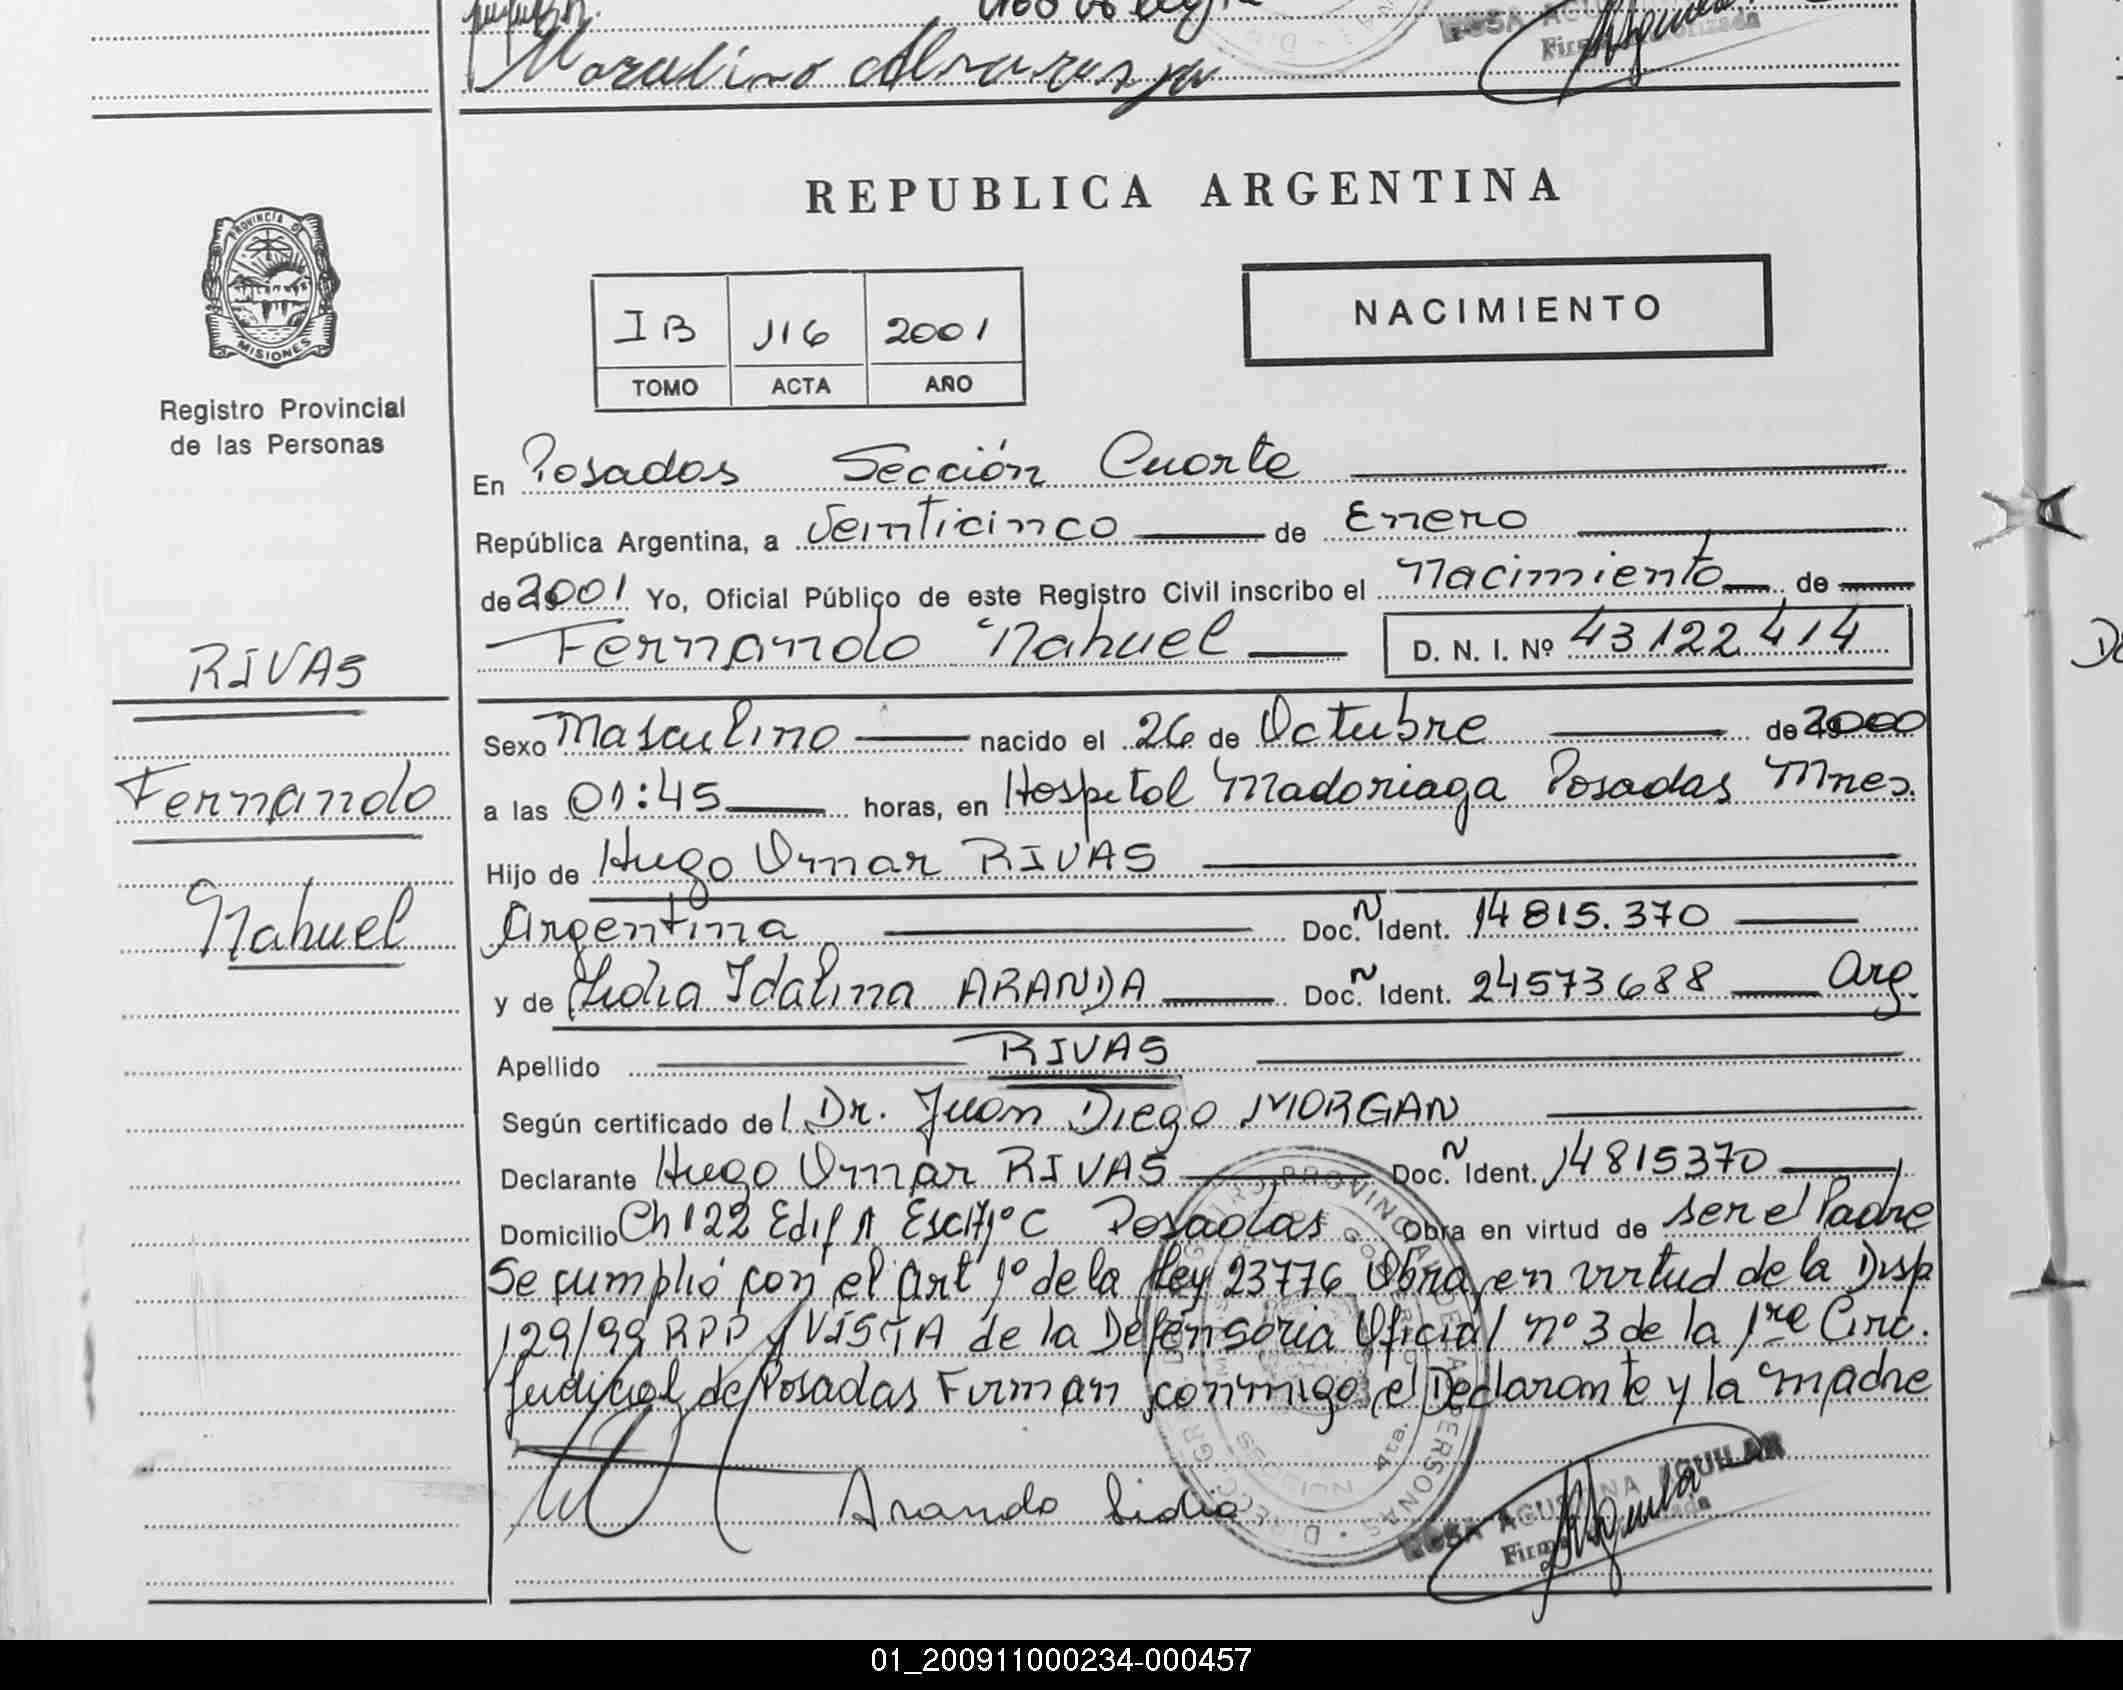 Marcelino Alvarez
Firma Autorizada
REPUBLICA ARGENTINA
PROVINCIA DE
MISIONES
Registro Provincial
de las Personas
IB 116 2001
TOMO ACTA AÑO
NACIMIENTO
En Posadas Sección Cuarta
República Argentina, a Veinticinco de Enero
de 2001 Yo, Oficial Público de este Registro Civil inscribo el Nacimiento de
Fernando Nahuel D. N. I. Nº 43122414
RIVAS
Fernando
Nahuel
Sexo Masculino nacido el 26 de Octubre de 2000
a las 01:45 horas, en Hospital Madariaga Posadas Mnes.
Hijo de Hugo Omar RIVAS
Argentina Doc. N Ident. 14815.370
y de Lidia Idalina ARANDA Doc. N Ident. 24573688 Arg.
Apellido RIVAS
Según certificado del Dr. Juan Diego MORGAN
Declarante Hugo Omar RIVAS Doc. N Ident. 14815370
Domicilio Ch 122 Edif A Esc 1º C Posadas Obra en virtud de ser el Padre
Se cumplió con el Art 1º de la Ley 23776 Obra en virtud de la Disp
129/99 RPP y VISTA de la Defensoria Oficial nº 3 de la 1ra Circ.
Judicial de Posadas Firman conmigo el Declarante y la madre
Aranda Lidia
ROSA AGUSTINA AGUILAR
Firma Autorizada
01_200911000234-000457